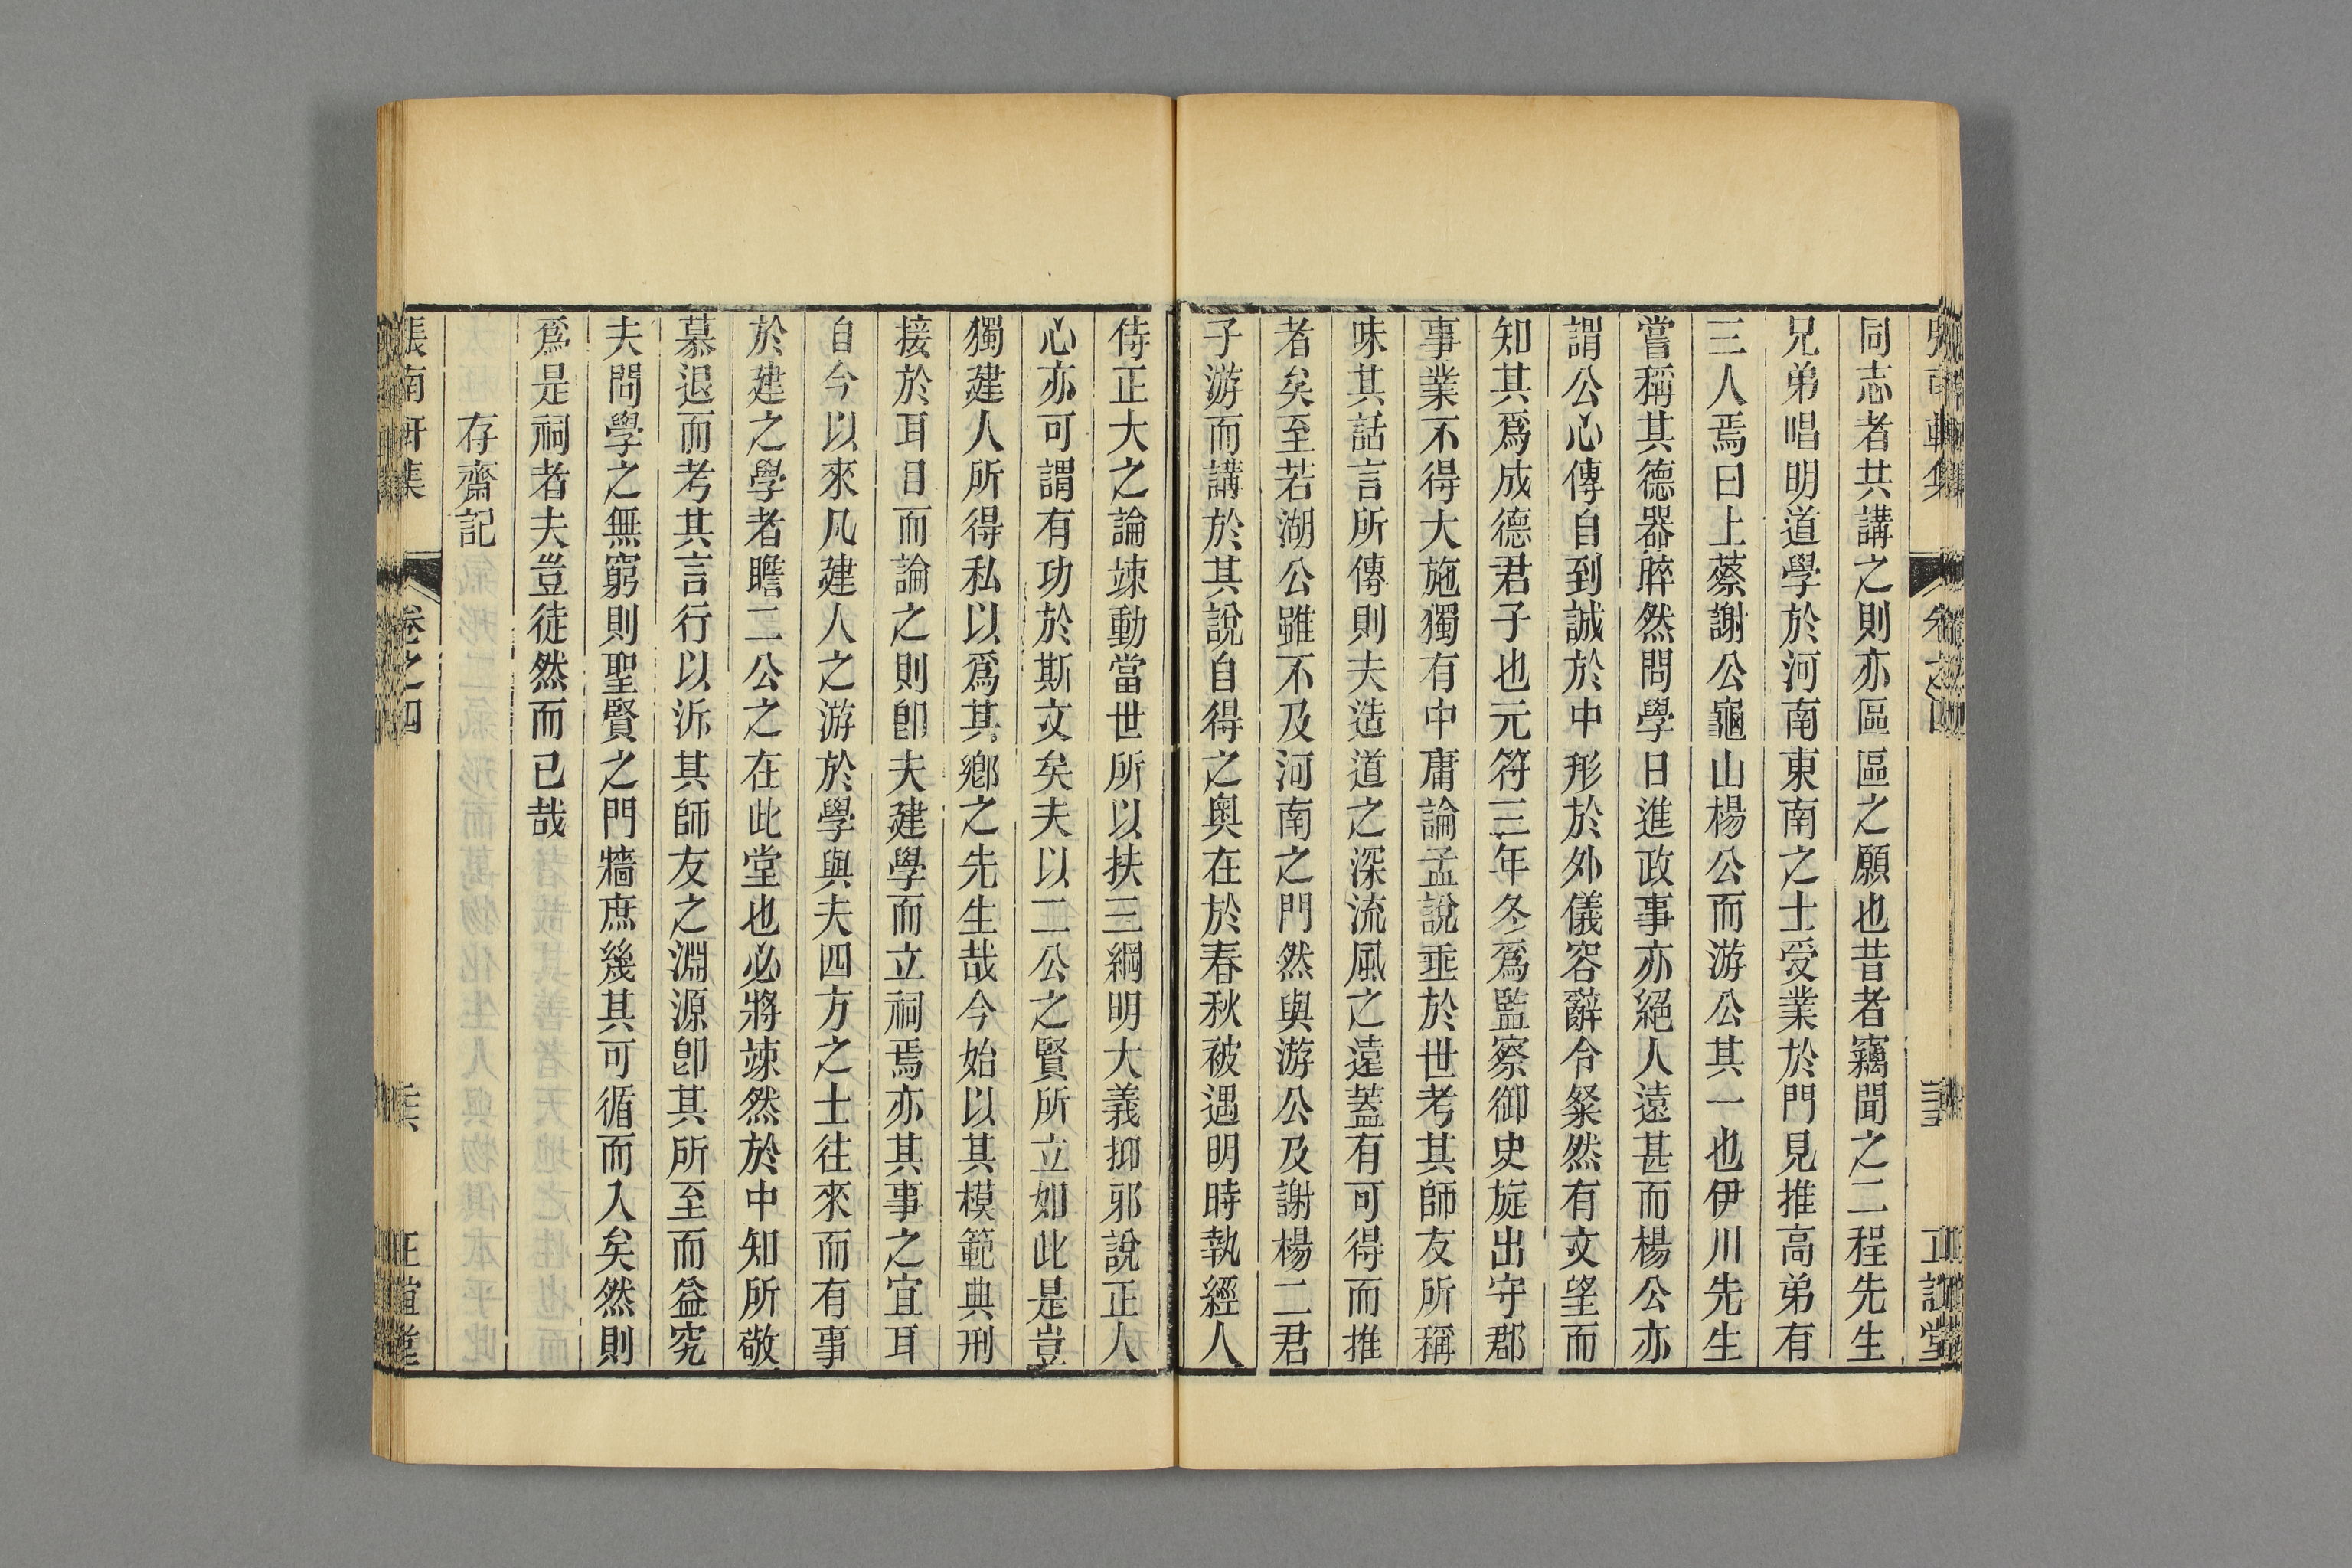 同志者共講之則亦區區之願也昔者竊聞之二程先生
兄弟唱明道學於河南東南之士受業於門見推高弟有
三人焉曰上蔡謝公龜山楊公而游公其一也伊川先生
嘗稱其德器睟然問學日進政事亦絕人遠甚而楊公亦
謂公心傳自到誠於中形於外儀容辭令粲然有文望而
知其爲成德君子也元符三年冬爲監察御史旋出守郡
事業不得大施獨有中庸論孟說垂於世考其師友所稱
味其話言所傳則夫造道之深流風之遠蓋有可得而推
者矣至若湖公雖不及河南之門然與游公及謝楊二君
子游而講於其說自得之奧在於春秋被遇明時執經人
侍正大之論竦動當世所以扶三綱明大義抑邪說正人
心亦可謂有功於斯文矣夫以二公之賢所立如此是豈
獨建人所得私以爲其鄉之先生哉今始以其模範典刑
接於耳目而論之則卽夫建學而立祠焉亦其事之宜耳
自今以來凡建人之游於學與夫四方之士往來而有事
於建之學者瞻二公之在此堂也必將竦然於中知所敬
慕退而考其言行以泝其師友之淵源卽其所至而益究
夫問學之無窮則聖賢之門牆庶幾其可循而入矣然則
爲是祠者夫豈徒然而已哉
存齋記
張南軒集
卷之四